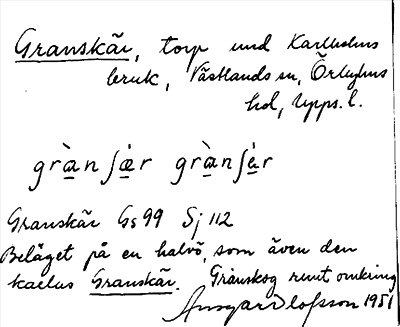 Granskär, torp und Karlholms
bruk, Västlands sn, Örbyhus
hd, Upps. l.
gràn ʃæ̀r gràn ʃàr
Granskär Gs 99 Sj 112
Beläget på en halvö, som även den
kallas Granskär. Granskog runt omkring
Ansgar Olofsson 1951